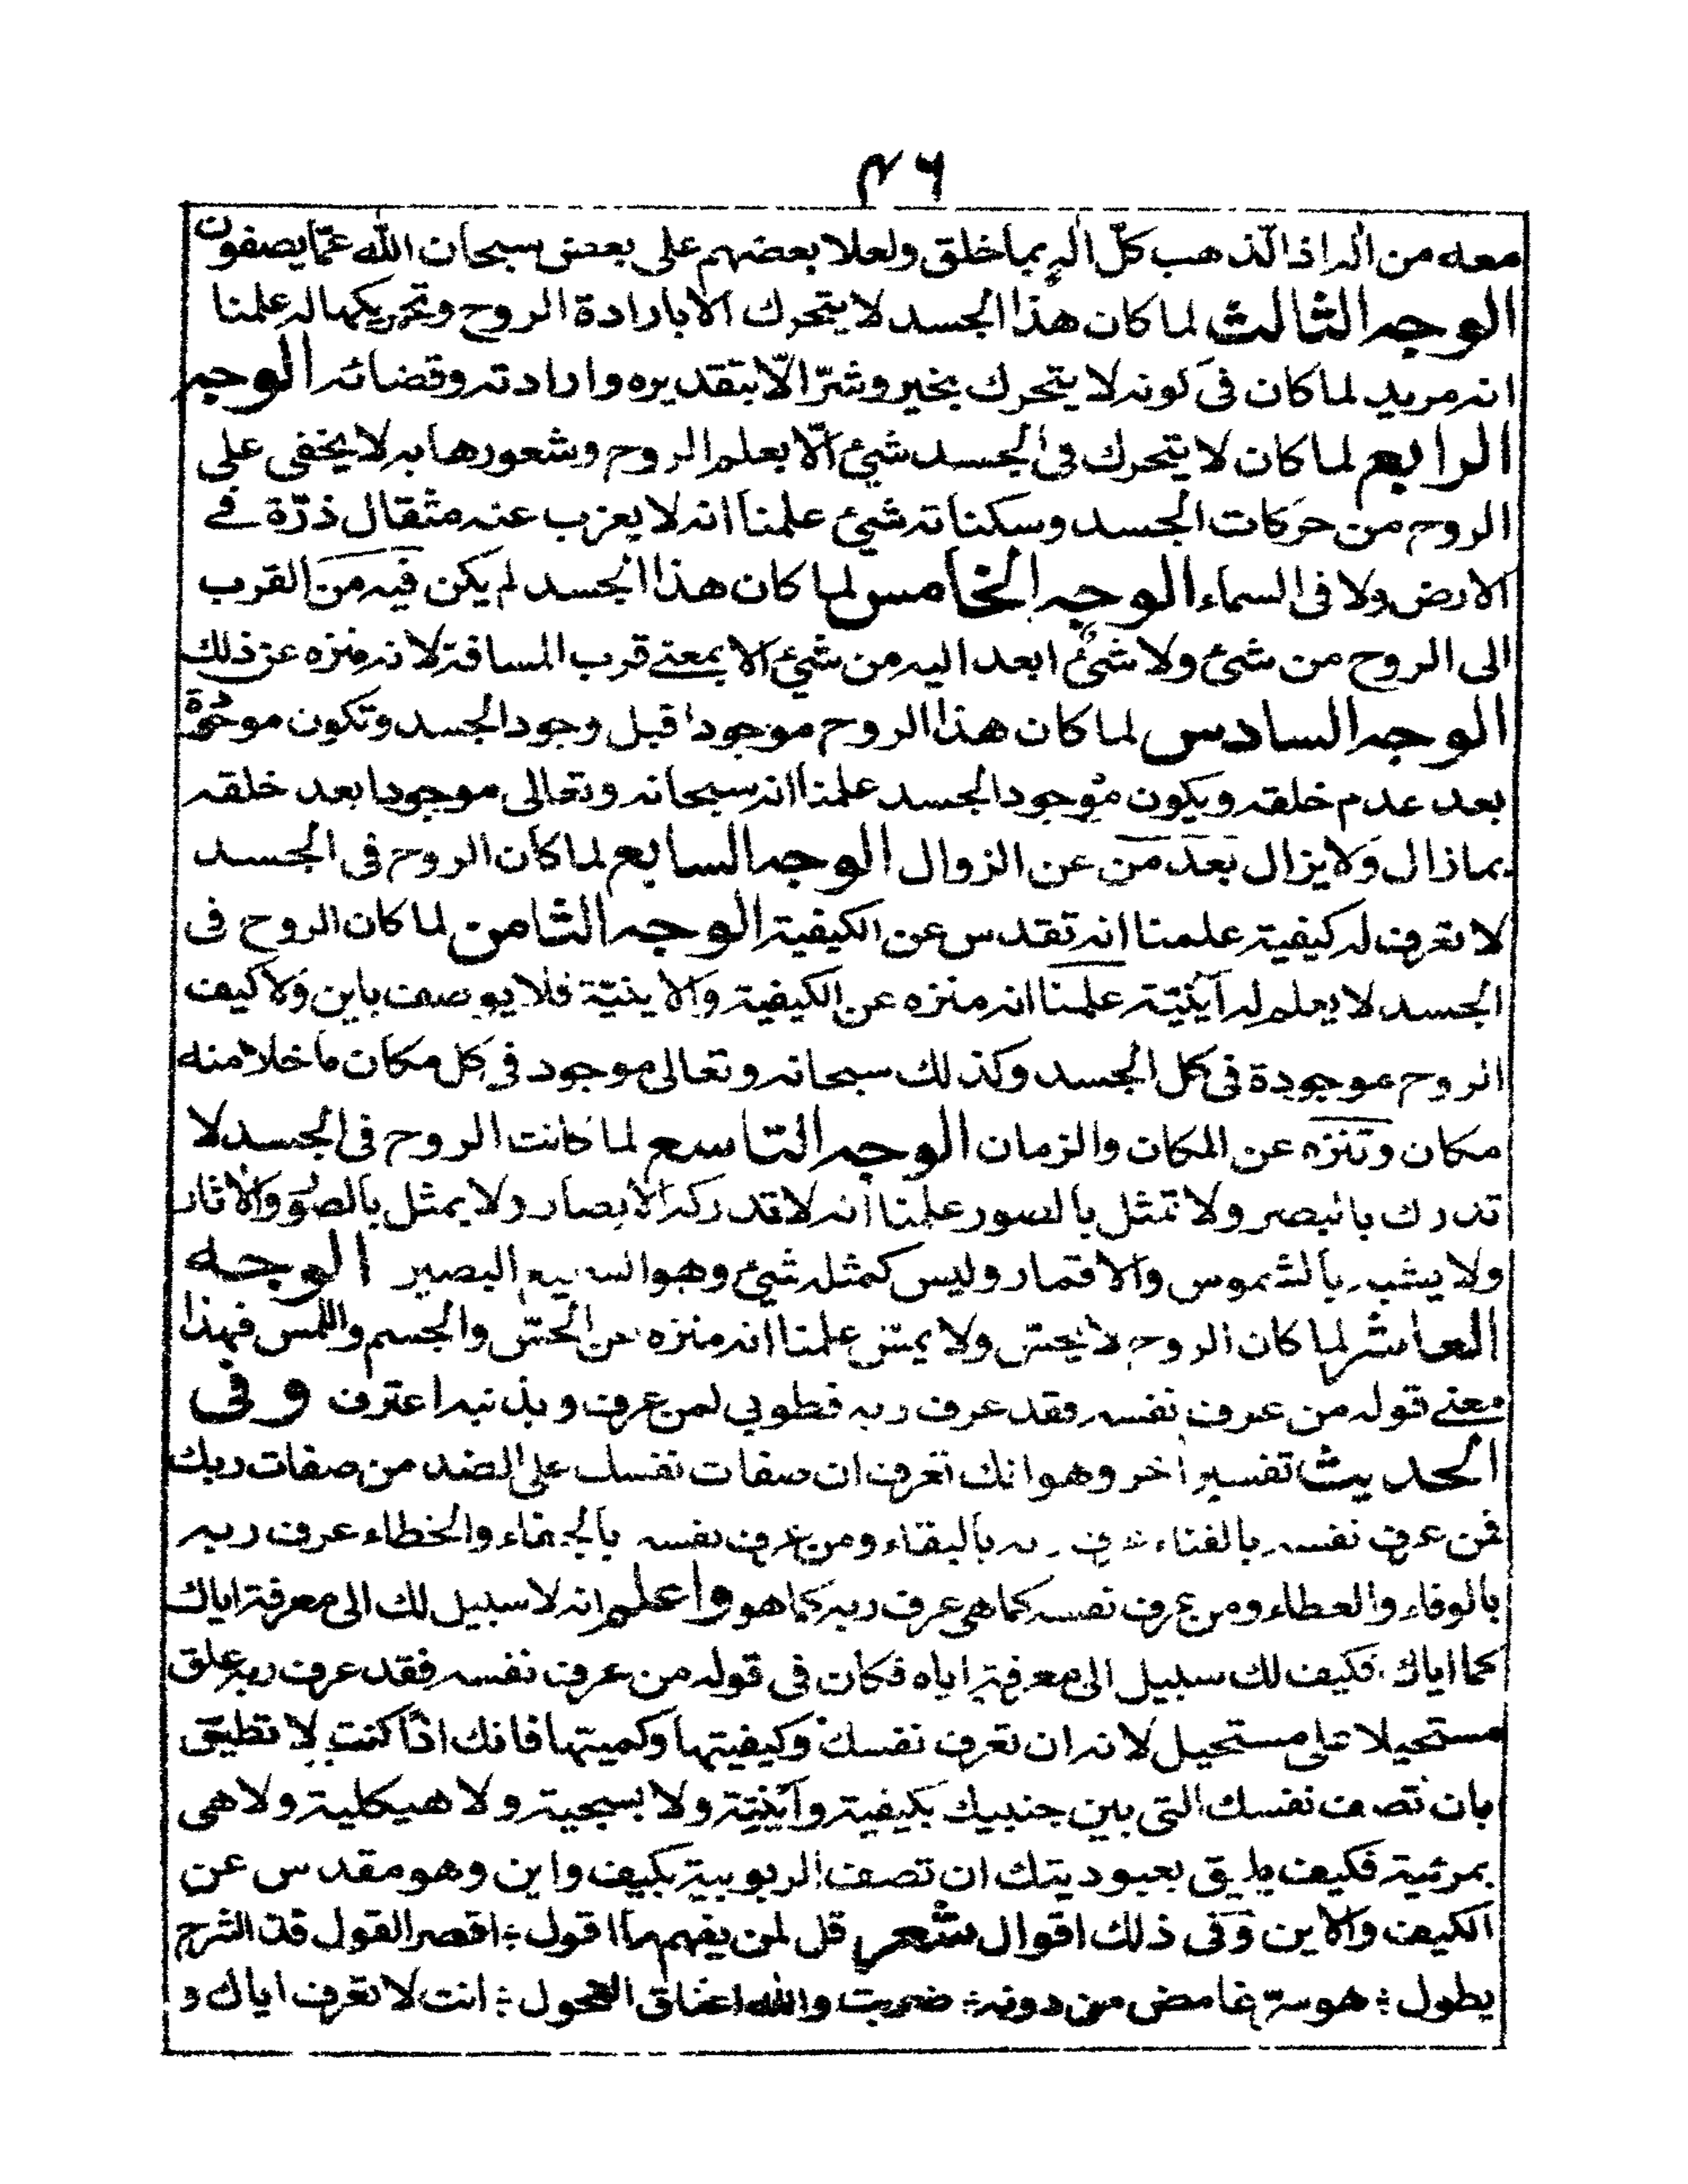 ۴۶
معه من اله اذا لذهب كلّ اله بما خلق ولعلا بعضهم على بعض سبحان الله عمّا يصفون
الوجه الثالث لما كان هذا الجسد لا يتحرك الا بارادة الروح وتحريكها له علمنا
انه مريد لما كان فى كونه لا يتحرك بخير وشرّ الّا بتقديره وارادته وقضائه الوجه
الرابع لما كان لا يتحرك فى الجسد شئ الّا بعلم الروح وشعورها به لا يخفى على
الروح من حركات الجسد وسكناته شئ علمنا انه لا يعزب عنه مثقال ذرّة فے
الارض ولا فى السماء الوجه الخامس لما كان هذا الجسد لم يكن فيه من القرب
الى الروح من شئ ولا شئ ابعد اليه من شئ الا بمعنے قرب المسافة لانه منزه عن ذلك
الوجه السادس لما كان هذا الروح موجودا قبل وجود الجسد وتكون موجودة
بعد عدم خلقه ويكون موجود الجسد علمنا انه سبحانه وتعالى موجودا بعد خلقه
بماذال ولا يزال بعد من عن الزوال الوجه السابع لما كان الروح فى الجسد
لا تعرف له كيفية علمنا انه تقدس عن الكيفية الوجه الثامن لما كان الروح فى
الجسد لا يعلم له اَينيّة علمنا انه منزه عن الكيفية والاينيّة فلا يوصف باين ولا كيف
الروح موجودة فى كل الجسد وكذلك سبحانه وتعالى موجود فى كل مكان ما خلا منه
مكان وتنزه عن المكان والزمان الوجه التاسع لما كانت الروح فى الجسد لا
تدرك بالبصر ولا تمثل بالصور علمنا انه لا تدركه الابصار ولا يمثل بالصور والاثار
ولا يشبه بالشموس والاقمار وليس كمثله شئ وهو السميع البصير الوجه
العاشر لما كان الروح لا يحسّ ولا يمسّ علمنا انه منزه عن الحسّ والجسم واللمس فهذا
معنے قوله من عرف نفسه فقد عرف ربه فطوبى لمن عرف وبذنبه اعترف وفى
الحديث تفسير اخر وهو انك تعرف ان صفات نفسك على الضد من صفات ربك
فمن عرف نفسه بالفناء عرف ربه بالبقاء ومن عرف نفسه بالجفاء والخطاء عرف ربه
بالوفاء والعطاء ومن عرف نفسه كما هى عرف ربه كما هو واعلم انه لا سبيل لك الى معرفة اياك
كما اياك فكيف لك سبيل الى معرفة اياه فكان فى قوله من عرف نفسه فقد عرف ربه علق
مستحيلا على مستحيل لانه ان تعرف نفسك وكيفيتها وكميتها فانك اذا كنت لا تطيق
بان تصف نفسك التى بين جنبيك بكيفية واَينيّة ولا بسجية ولا هيكلية ولا هى
بمرئية فكيف يليق بعبوديتك ان تصف الربوبية بكيف واين وهو مقدس عن
الكيف والاين وفى ذلك اقوال شعر قل لمن يفهم ما اقول ؛ اقصر القول فذا الشرح
يطول ؛ هو سرّ غامض من دونه ؛ ضربت والله اعناق الفحول ؛ انت لا تعرف اياك و